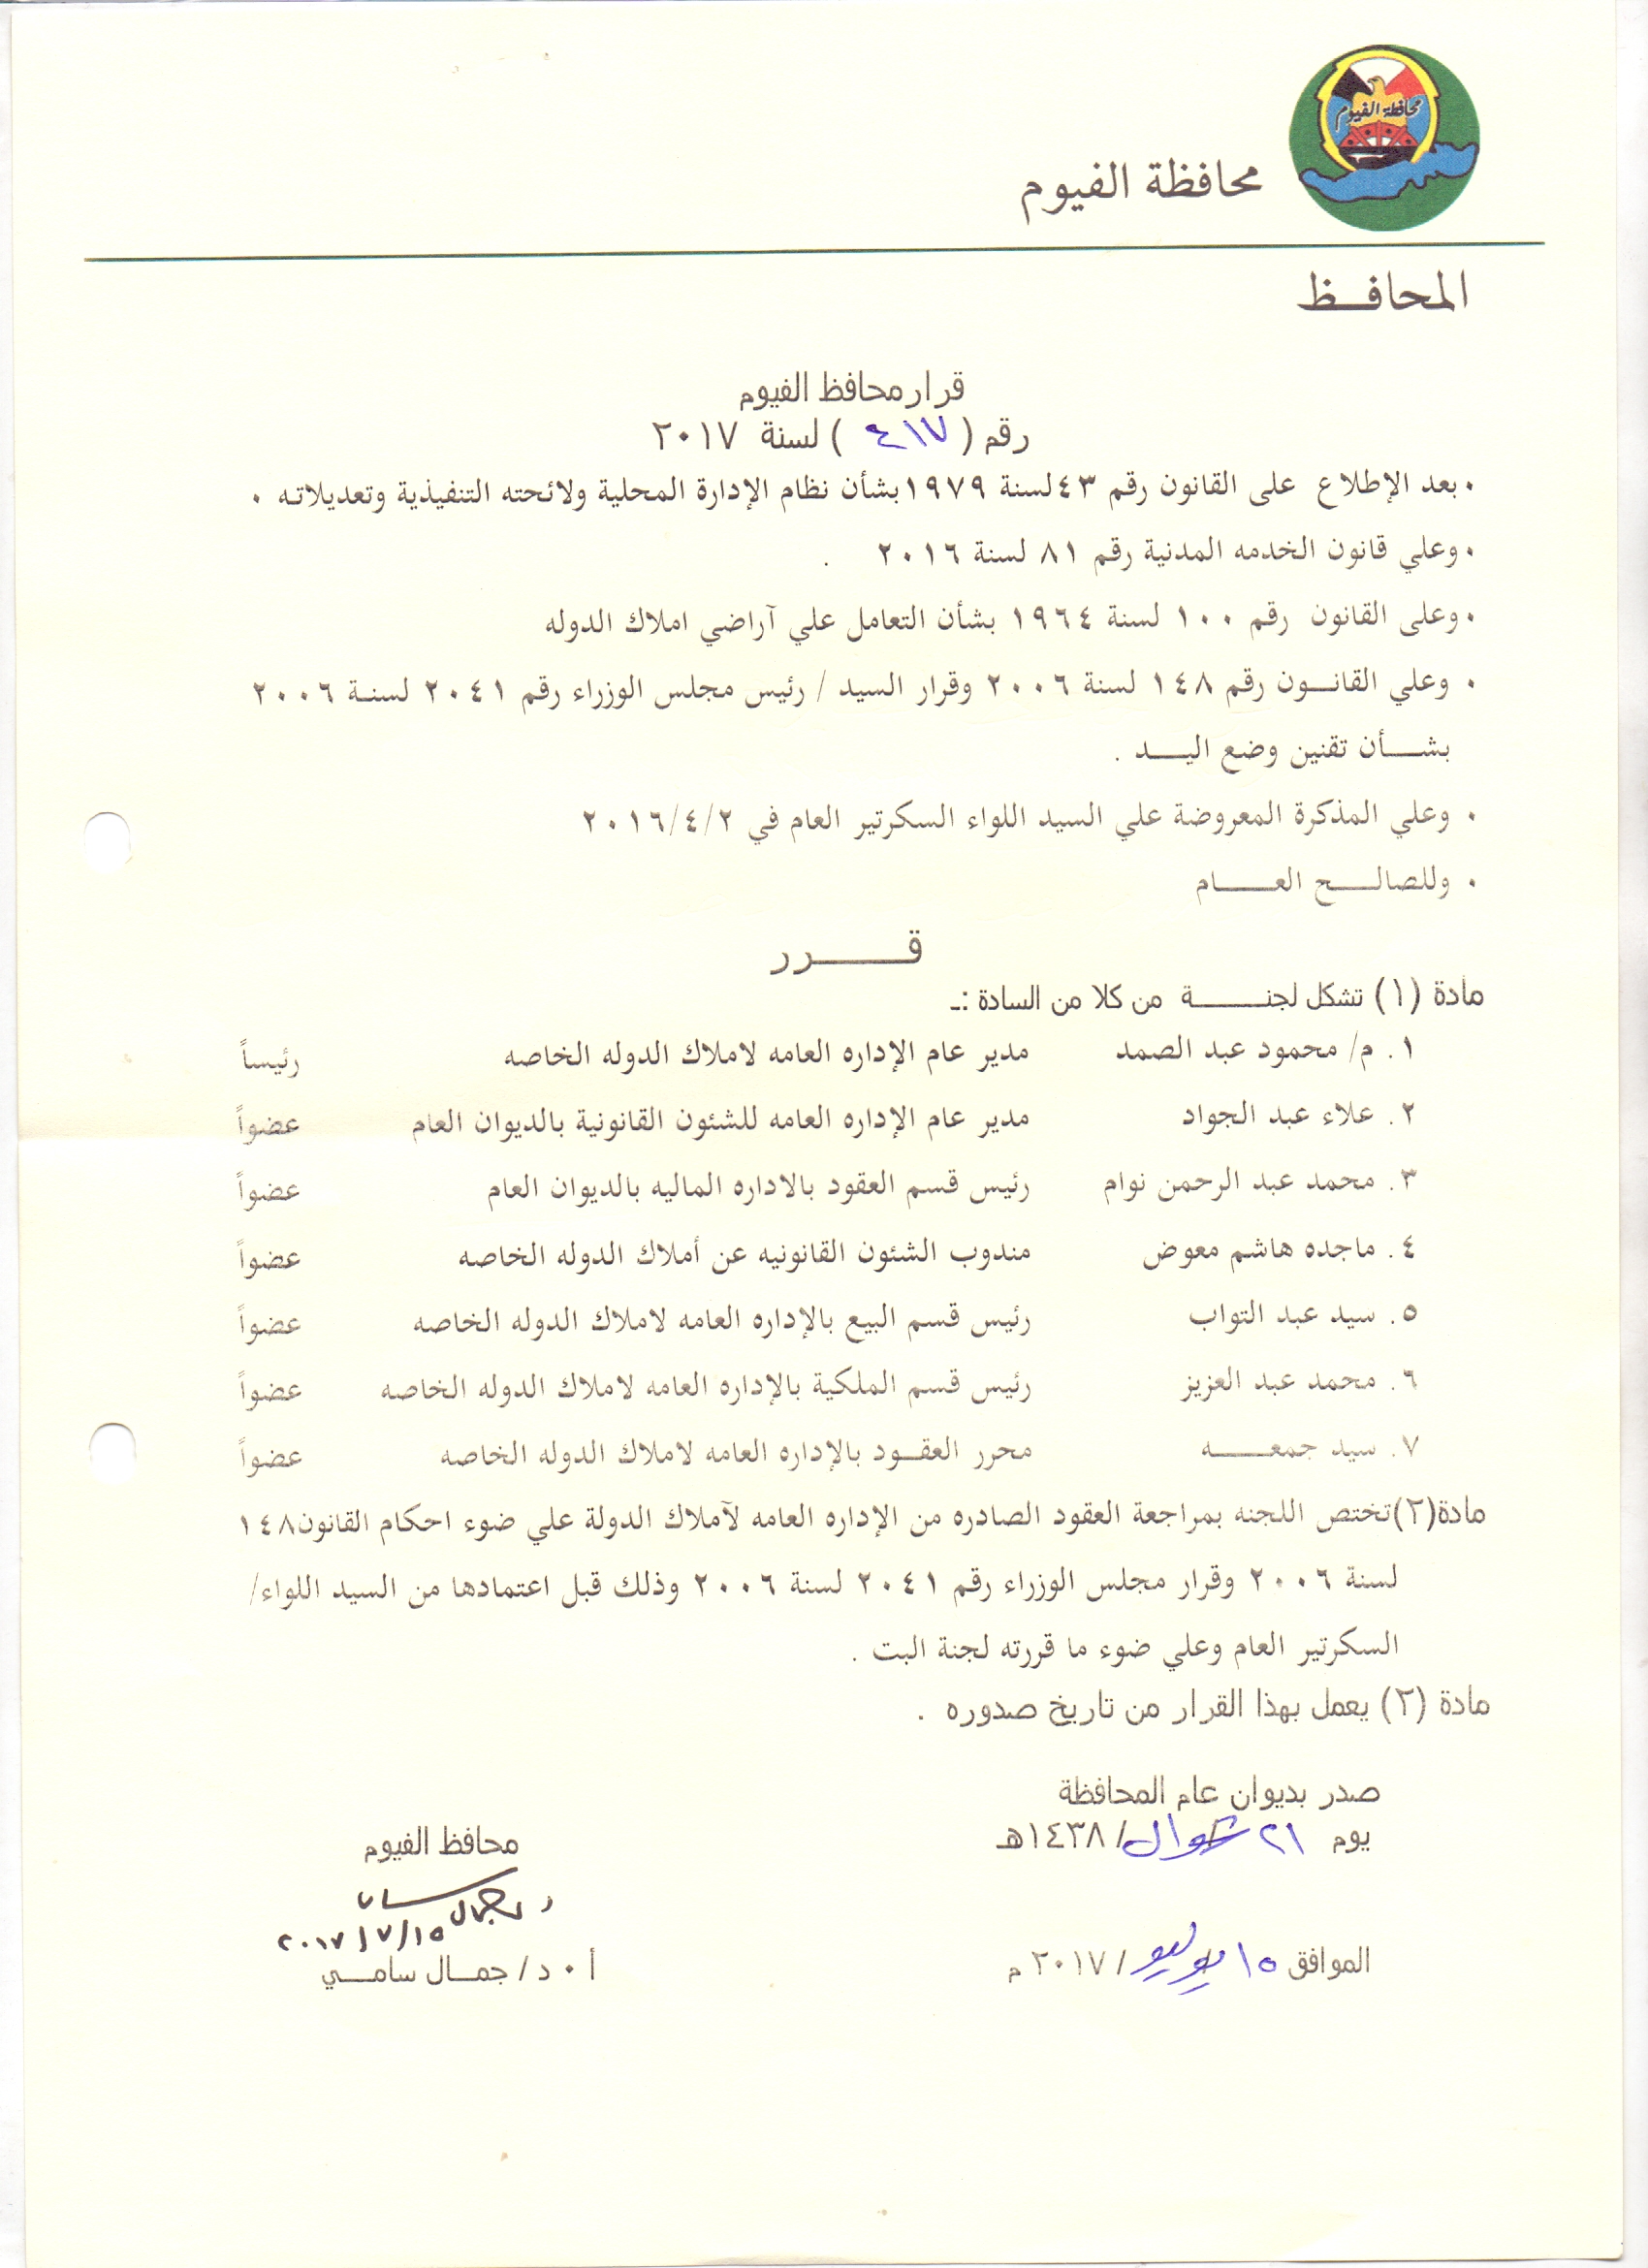 محافظة الفيوم
محافظة الفيوم
المحافـــظ
قرار محافظ الفيوم
رقم ( ٤١٧ ) لسنة ٢٠١٧
• بعد الإطلاع على القانون رقم ٤٣ لسنة ١٩٧٩ بشأن نظام الإدارة المحلية ولائحته التنفيذية وتعديلاته ٠
• وعلي قانون الخدمه المدنية رقم ٨١ لسنة ٢٠١٦ .
• وعلى القانون رقم ١٠٠ لسنة ١٩٦٤ بشأن التعامل علي آراضي املاك الدوله
• وعلي القانـــون رقم ١٤٨ لسنة ٢٠٠٦ وقرار السيد / رئيس مجلس الوزراء رقم ٢٠٤١ لسنـة ٢٠٠٦
بشـــــأن تقنين وضع اليـــــد .
• وعلي المذكرة المعروضة علي السيد اللواء السكرتير العام في ٢٠١٦/٤/٢
• وللصالـــــح العـــــــام
قـــــــــرر
مادة (١) تشكل لجنـــــــــة من كلا من السادة :ـ
١. م/ محمود عبد الصمد مدير عام الإداره العامه لاملاك الدوله الخاصه رئيساً
٢. علاء عبد الجواد مدير عام الإداره العامه للشئون القانونية بالديوان العام عضواً
٣. محمد عبد الرحمن نوام رئيس قسم العقود بالاداره الماليه بالديوان العام عضواً
٤. ماجده هاشم معوض مندوب الشئون القانونيه عن أملاك الدوله الخاصه عضواً
٥. سيد عبد التواب رئيس قسم البيع بالإداره العامه لاملاك الدوله الخاصه عضواً
٦. محمد عبد العزيز رئيس قسم الملكية بالإداره العامه لاملاك الدوله الخاصه عضواً
٧. سيد جمعـــــــه محرر العقــود بالإداره العامه لاملاك الدوله الخاصه عضواً
مادة(٢)تختص اللجنه بمراجعة العقود الصادره من الإداره العامه لآملاك الدولة علي ضوء احكام القانون١٤٨
لسنة ٢٠٠٦ وقرار مجلس الوزراء رقم ٢٠٤١ لسنة ٢٠٠٦ وذلك قبل اعتمادها من السيد اللواء/
السكرتير العام وعلي ضوء ما قررته لجنة البت .
مادة (٣) يعمل بهذا القرار من تاريخ صدوره .
صدر بديوان عام المحافظة
يوم ٢١ شوال/ ١٤٣٨هـ
الموافق ١٥ يوليو/ ٢٠١٧ م
محافظ الفيوم
د جمال سامى
٢٠١٧/٧/١٥
أ ٠ د/ جمــال سامـــي